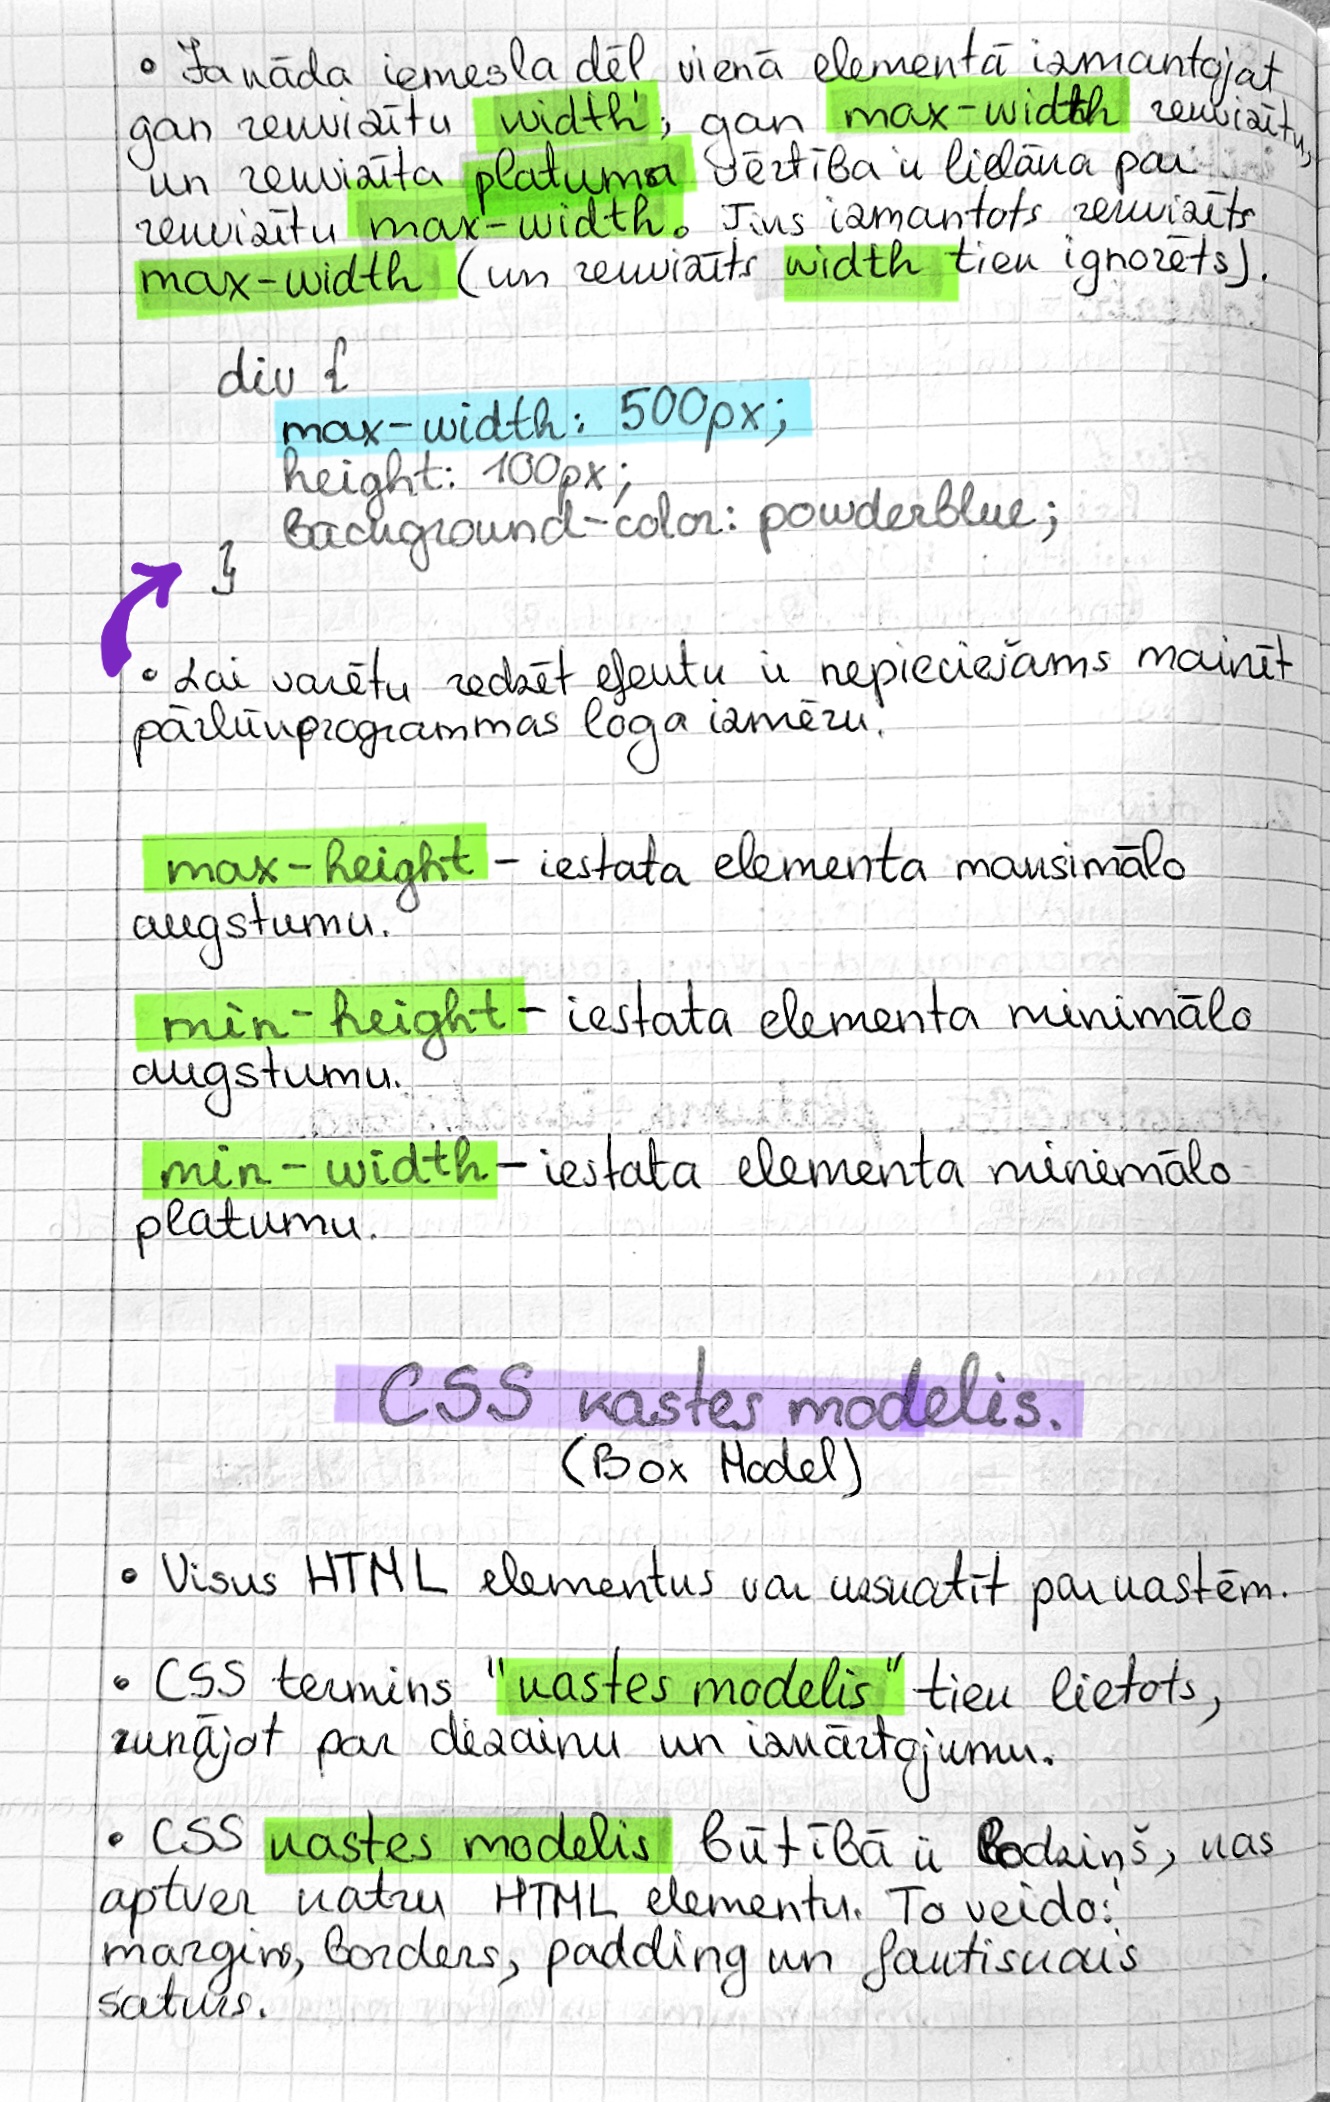 • Ja kāda iemesla dēļ vienā elementā izmantojat
gan rekvizītu width, gan max-width rekvizītu,
un rekvizīta platuma vērtība ir lielāka par
rekvizītu max-width. Tiks izmantots rekvizīts
max-width (un rekvizīts width tiek ignorēts).
div {
max-width: 500px;
height: 100px;
background-color: powderblue;
}
• Lai varētu redzēt efektu ir nepieciešams mainīt
pārlūkprogrammas loga izmēru.
max-height - iestata elementa maksimālo
augstumu.
min-height - iestata elementa minimālo
augstumu.
min-width - iestata elementa minimālo
platumu.
CSS kastes modelis.
(Box Model)
• Visus HTML elementus var uzskatīt par kastēm.
• CSS termins "kastes modelis" tiek lietots,
runājot par dizainu un izkārtojumu.
• CSS kastes modelis būtībā ir lodziņš, kas
aptver katru HTML elementu. To veido:
margins, borders, padding un faktiskais
saturs.